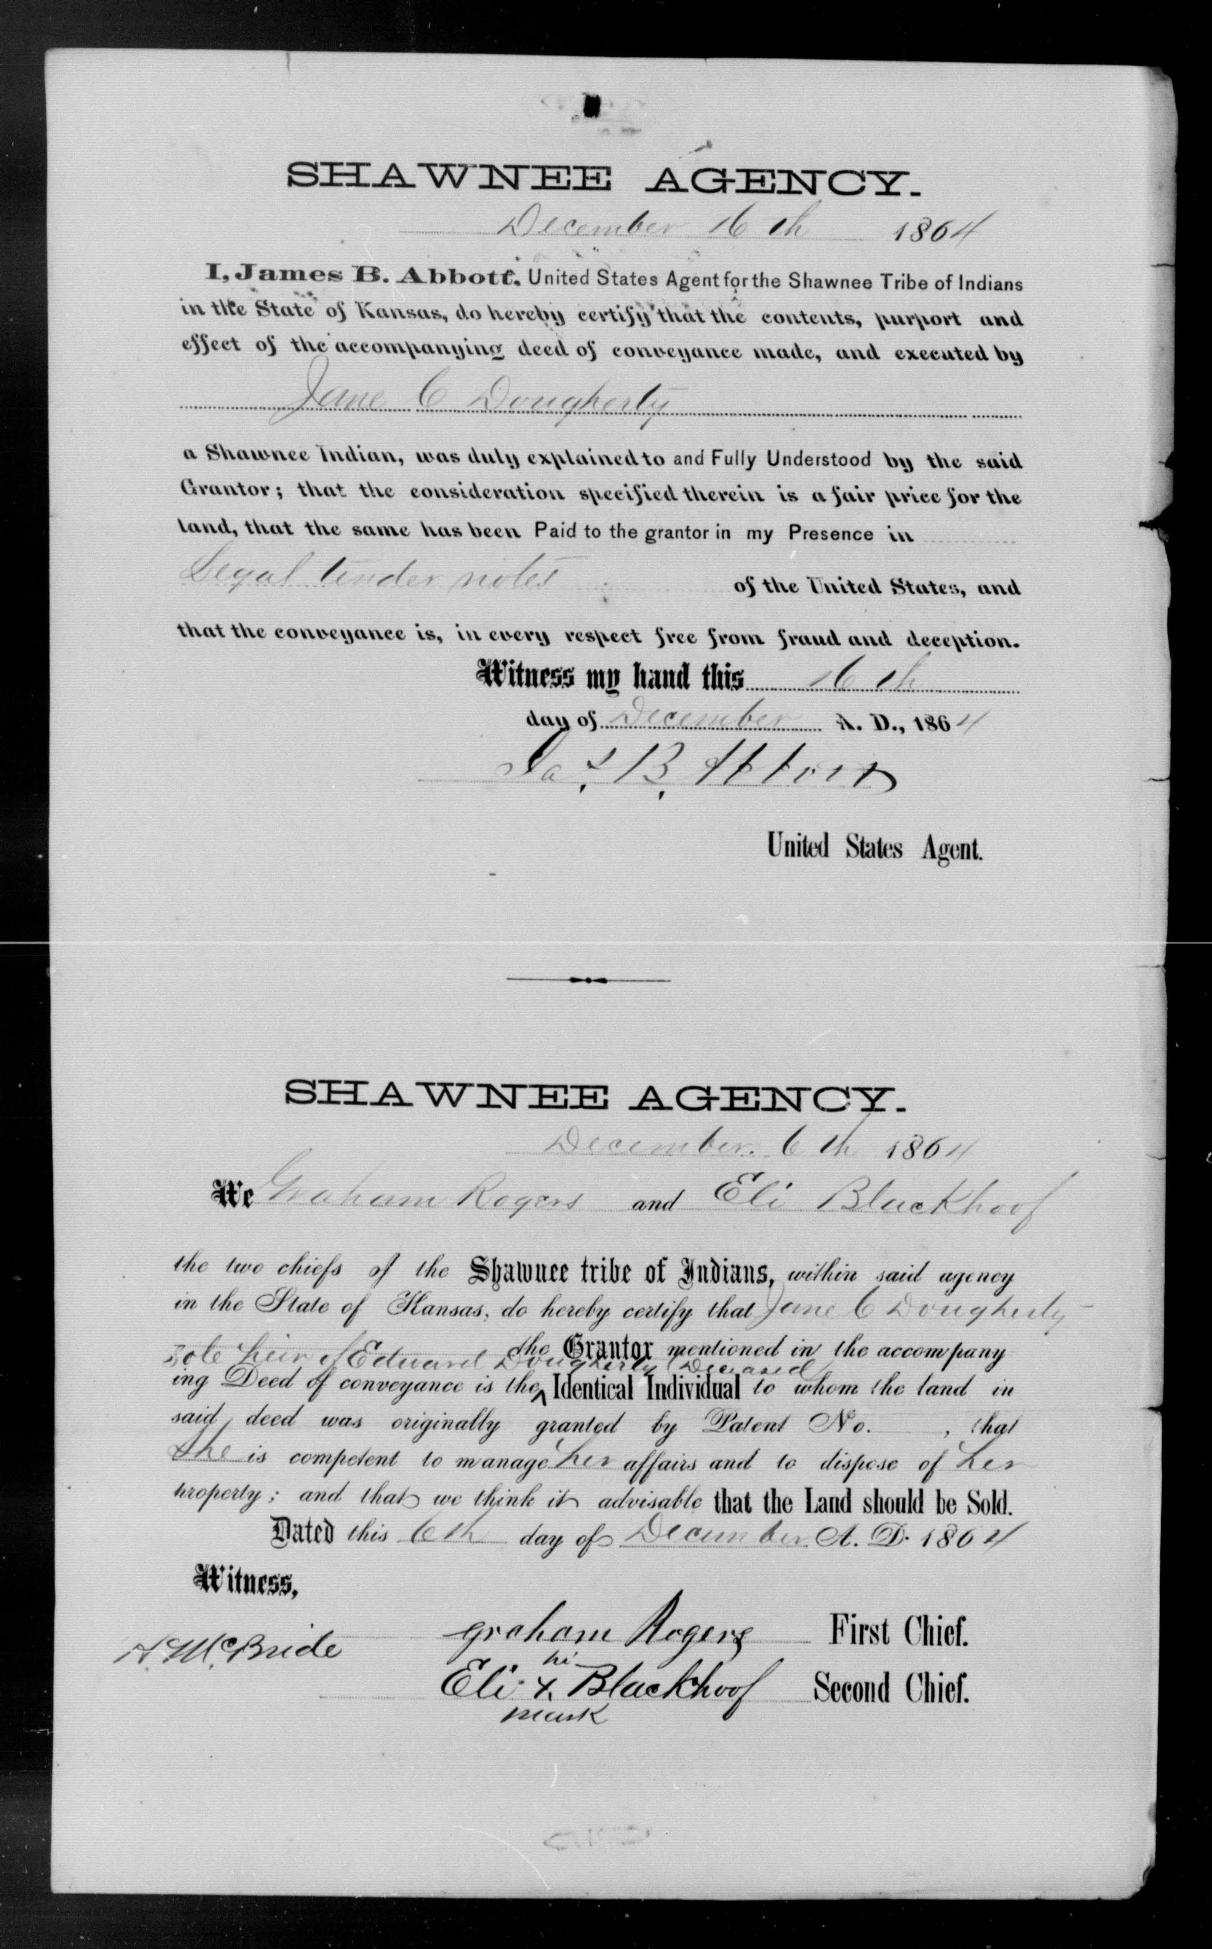 SHAWNEE AGENCY.
December 16th 1864
I, James B. Abbott, United States Agent for the Shawnee Tribe of Indians
in the State of Kansas, do hereby certify that the contents, purport and
effect of the accompanying deed of conveyance made, and executed by
Jane C Dougherty
a Shawnee Indian, was duly explained to and Fully Understood by the said
Grantor; that the consideration specified therein is a fair price for the
land, that the same has been Paid to the grantor in my Presence in
Legal tender notes of the United States, and
that the conveyance is, in every respect free from fraud and deception.
Witness my hand this 16th
day of December A. D., 1864
Jas. B. Abbott
United States Agent.
SHAWNEE AGENCY.
December. 6th 1864
We Graham Rogers and Eli Blackhoof
the two chiefs of the Shawnee tribe of Indians, within said agency
in the State of Kansas, do hereby certify that Jane C Dougherty
the Grantor mentioned in the accompany
sole heir of Eduard Dougherty (Deceased)
ing Deed of conveyance is the ^ Identical Individual to whom the land in
said deed was originally granted by Patent No. , that
she is competent to manage her affairs and to dispose of her
property; and that we think it advisable that the Land should be Sold.
Dated this 6th day of December A. D. 1864
Witness,
A. McBride
graham Rogers First Chief.
his
Eli x Blackhoof Second Chief.
mark